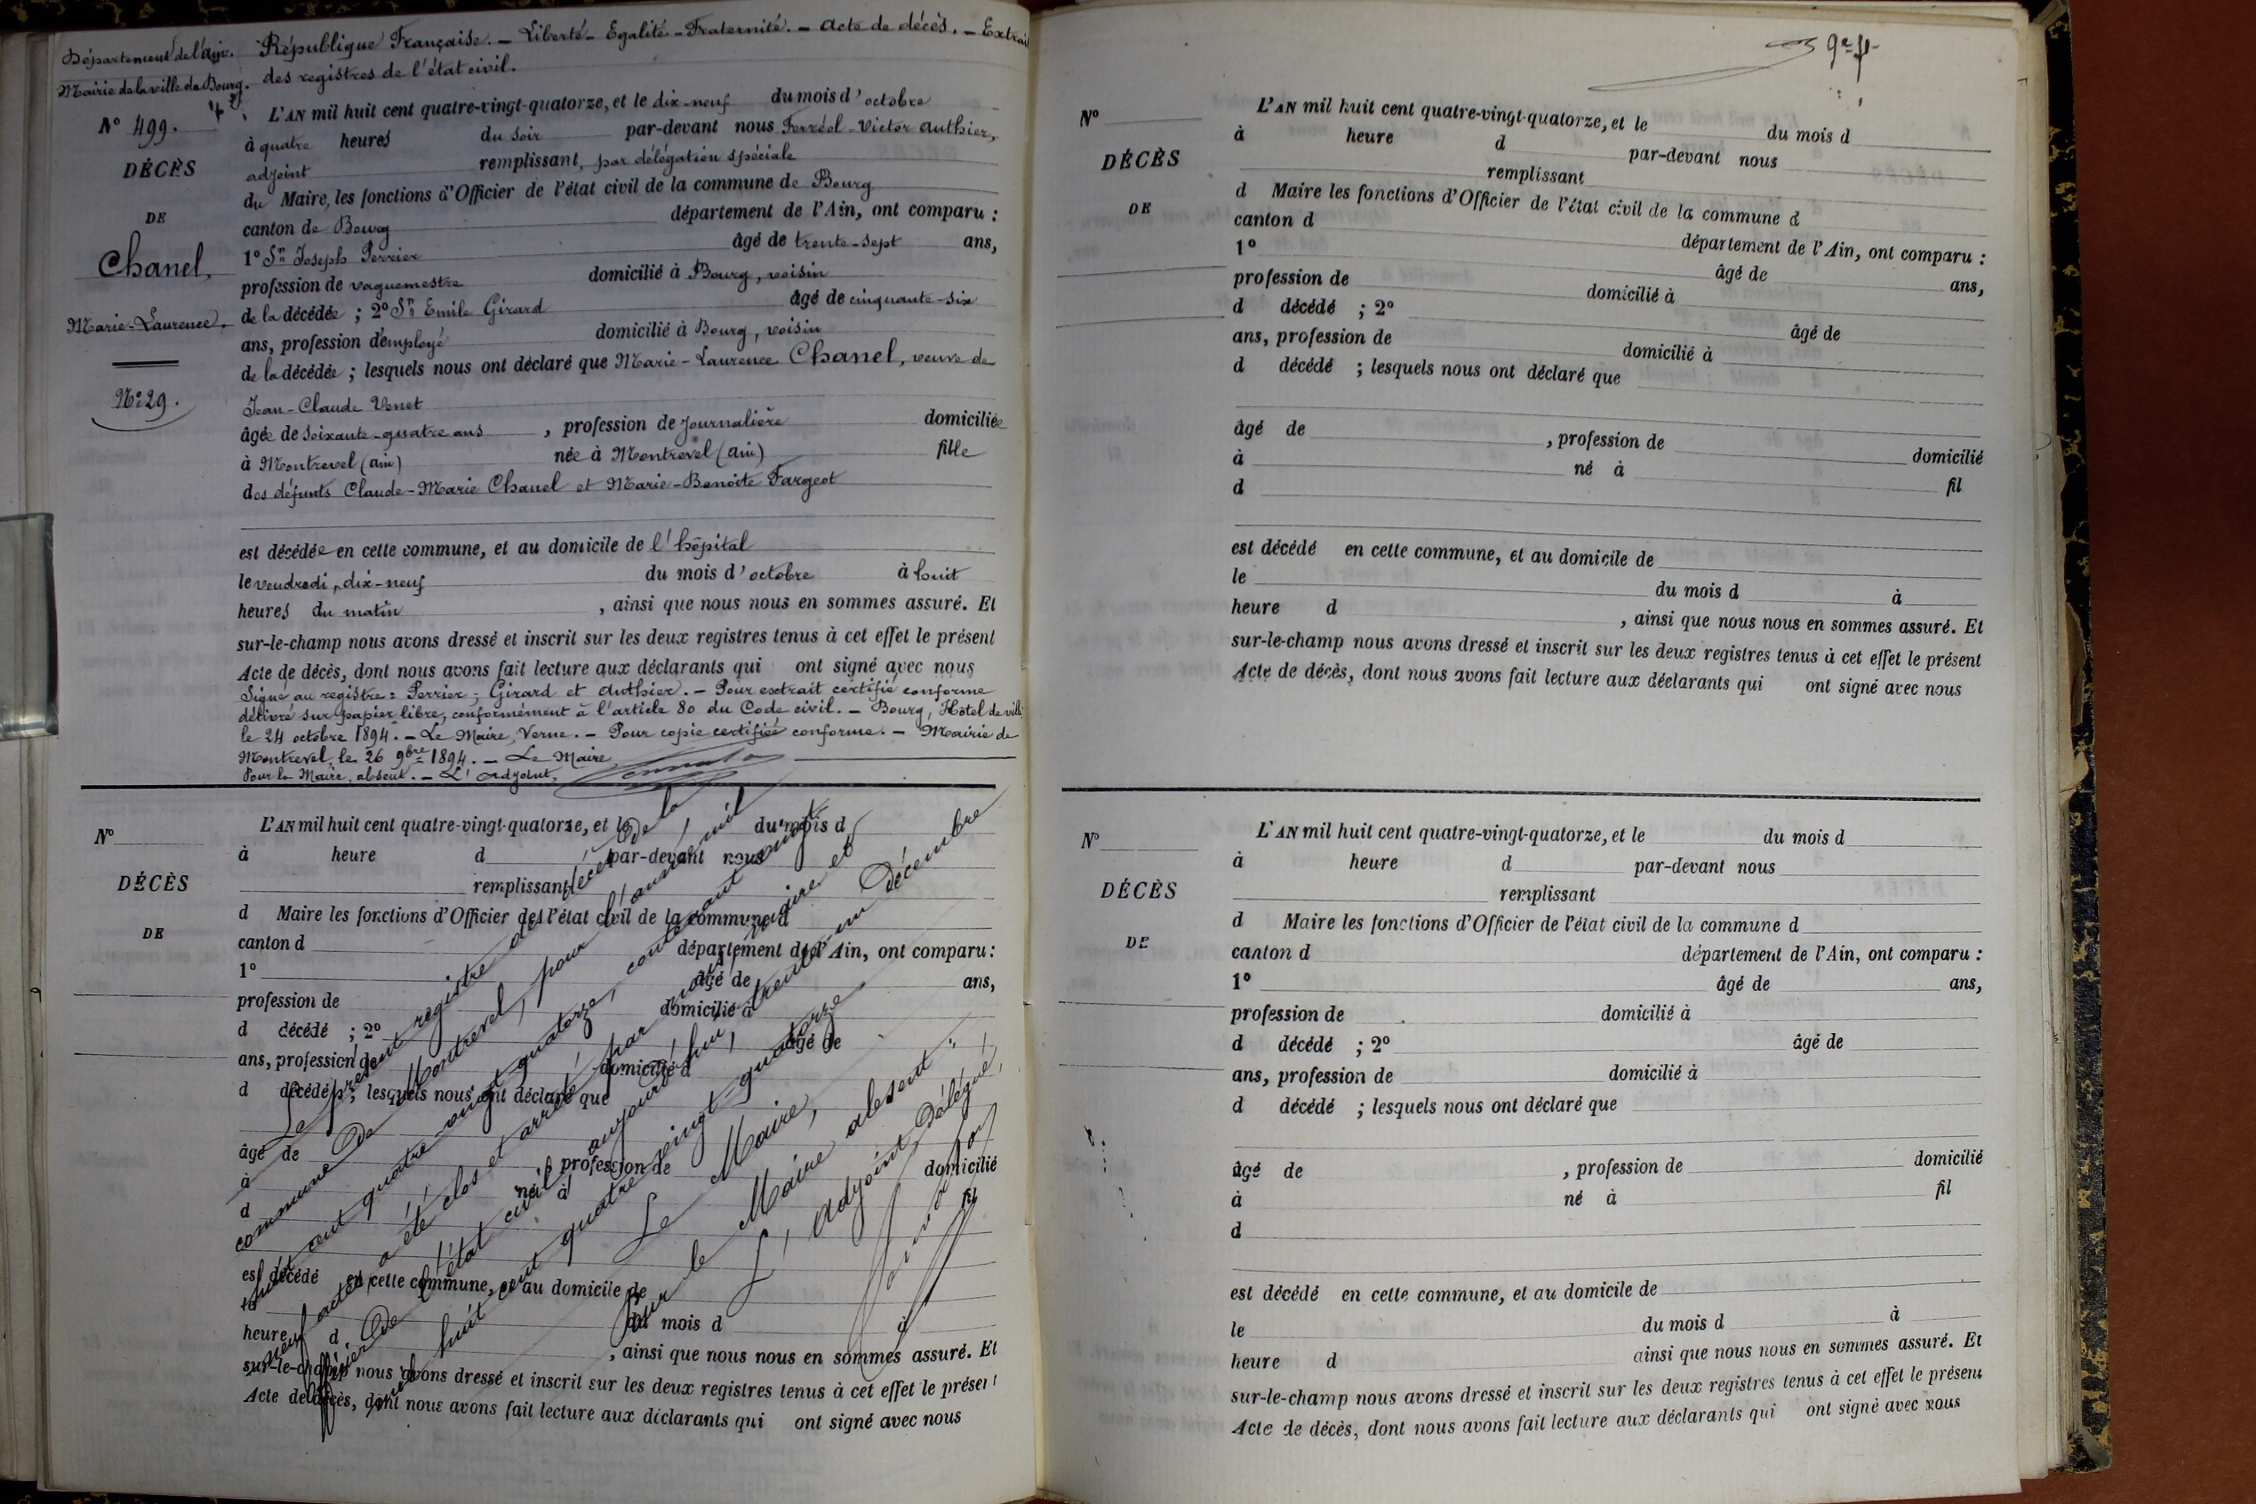 Département de l'Ain. République Française. – Liberté – Egalité – Fraternité. – Acte de décès. – Extrait
Mairie de la ville de Bourg. des registres de l'état civil.
N° 499.
DÉCÈS
DE
Chanel,
Marie-Laurence,
N° 29.
L'AN mil huit cent quatre-vingt-quatorze, et le dix-neuf du mois d'octobre
à quatre heures du soir par-devant nous Ferréol-Victor Authier,
adjoint remplissant, par délégation spéciale
du Maire, les fonctions d'Officier de l'état civil de la commune de Bourg
canton de Bourg département de l'Ain, ont comparu :
1° Sr Joseph Perrier âgé de trente-sept ans,
profession de vaguemestre domicilié à Bourg, voisin
de la décédée ; 2° Sr Emile Girard âgé de cinquante-six
ans, profession d'employé domicilié à Bourg, voisin
de la décédée ; lesquels nous ont déclaré que Marie-Laurence Chanel, veuve de
Jean-Claude Venet
âgée de soixante-quatre ans , profession de journalière domiciliée
à Montrevel (Ain) née à Montrevel (Ain) fille
des défunts Claude-Marie Chanel et Marie-Benoite Fargeot
est décédée en cette commune, et au domicile de l'hôpital
le vendredi, dix-neuf du mois d'octobre à huit
heures du matin , ainsi que nous nous en sommes assuré. Et
sur-le-champ nous avons dressé et inscrit sur les deux registres tenus à cet effet le présent
Acte de décès, dont nous avons fait lecture aux déclarants qui ont signé avec nous
Signé au registre : Perrier ; Girard et Authier. – Pour extrait certifié conforme
délivré sur papier libre, conformément à l'article 80 du Code civil. – Bourg, Hôtel de ville
le 24 octobre 1894. – Le Maire, Verne. – Pour copie certifiée conforme. – Mairie de
Montrevel, le 26 9bre 1894. – Le Maire
Pour le Maire, absent. – L'Adjoint,
N°
DÉCÈS
DE
L'AN mil huit cent quatre-vingt-quatorze, et le du mois d
à heure d par-devant nous
remplissant
d Maire les fonctions d'Officier de l'état civil de la commune d
canton d département de l'Ain, ont comparu :
1° âgé de ans,
profession de domicilié à
d décédé ; 2° âgé de
ans, profession de domicilié à
d décédé ; lesquels nous ont déclaré que
âgé de , profession de domicilié
à né à fil
d
est décédé en cette commune, et au domicile de
le du mois d à
heure d , ainsi que nous nous en sommes assuré. Et
sur-le-champ nous avons dressé et inscrit sur les deux registres tenus à cet effet le présent
Acte de décès, dont nous avons fait lecture aux déclarants qui ont signé avec nous
Le présent registre des décès de la
commune de Montrevel, pour l'année mil
huit cent quatre-vingt quatorze, contenant vingt
neuf actes, a été clos et arrêté par nous, maire et
officier de l'état civil, aujourd'hui, trente un décembre
mil huit cent quatre vingt quatorze.
Le Maire,
Pour le Maire absent :
L'Adjoint Délégué,
N°
DÉCÈS
DE
L'AN mil huit cent quatre-vingt-quatorze, et le du mois d
à heure d par-devant nous
remplissant
d Maire les fonctions d'Officier de l'état civil de la commune d
canton d département de l'Ain, ont comparu :
1° âgé de ans,
profession de domicilié à
d décédé ; 2° âgé de
ans, profession de domicilié à
d décédé ; lesquels nous ont déclaré que
âgé de , profession de domicilié
à né à fil
d
est décédé en cette commune, et au domicile de
le du mois d à
heure d , ainsi que nous nous en sommes assuré. Et
sur-le-champ nous avons dressé et inscrit sur les deux registres tenus à cet effet le présent
Acte de décès, dont nous avons fait lecture aux déclarants qui ont signé avec nous
N°
DÉCÈS
DE
L'AN mil huit cent quatre-vingt-quatorze, et le du mois d
à heure d par-devant nous
remplissant
d Maire les fonctions d'Officier de l'état civil de la commune d
canton d département de l'Ain, ont comparu :
1° âgé de ans,
profession de domicilié à
d décédé ; 2° âgé de
ans, profession de domicilié à
d décédé ; lesquels nous ont déclaré que
âgé de , profession de domicilié
à né à fil
d
est décédé en cette commune, et au domicile de
le du mois d à
heure d ainsi que nous nous en sommes assuré. Et
sur-le-champ nous avons dressé et inscrit sur les deux registres tenus à cet effet le présent
Acte de décès, dont nous avons fait lecture aux déclarants qui ont signé avec nous